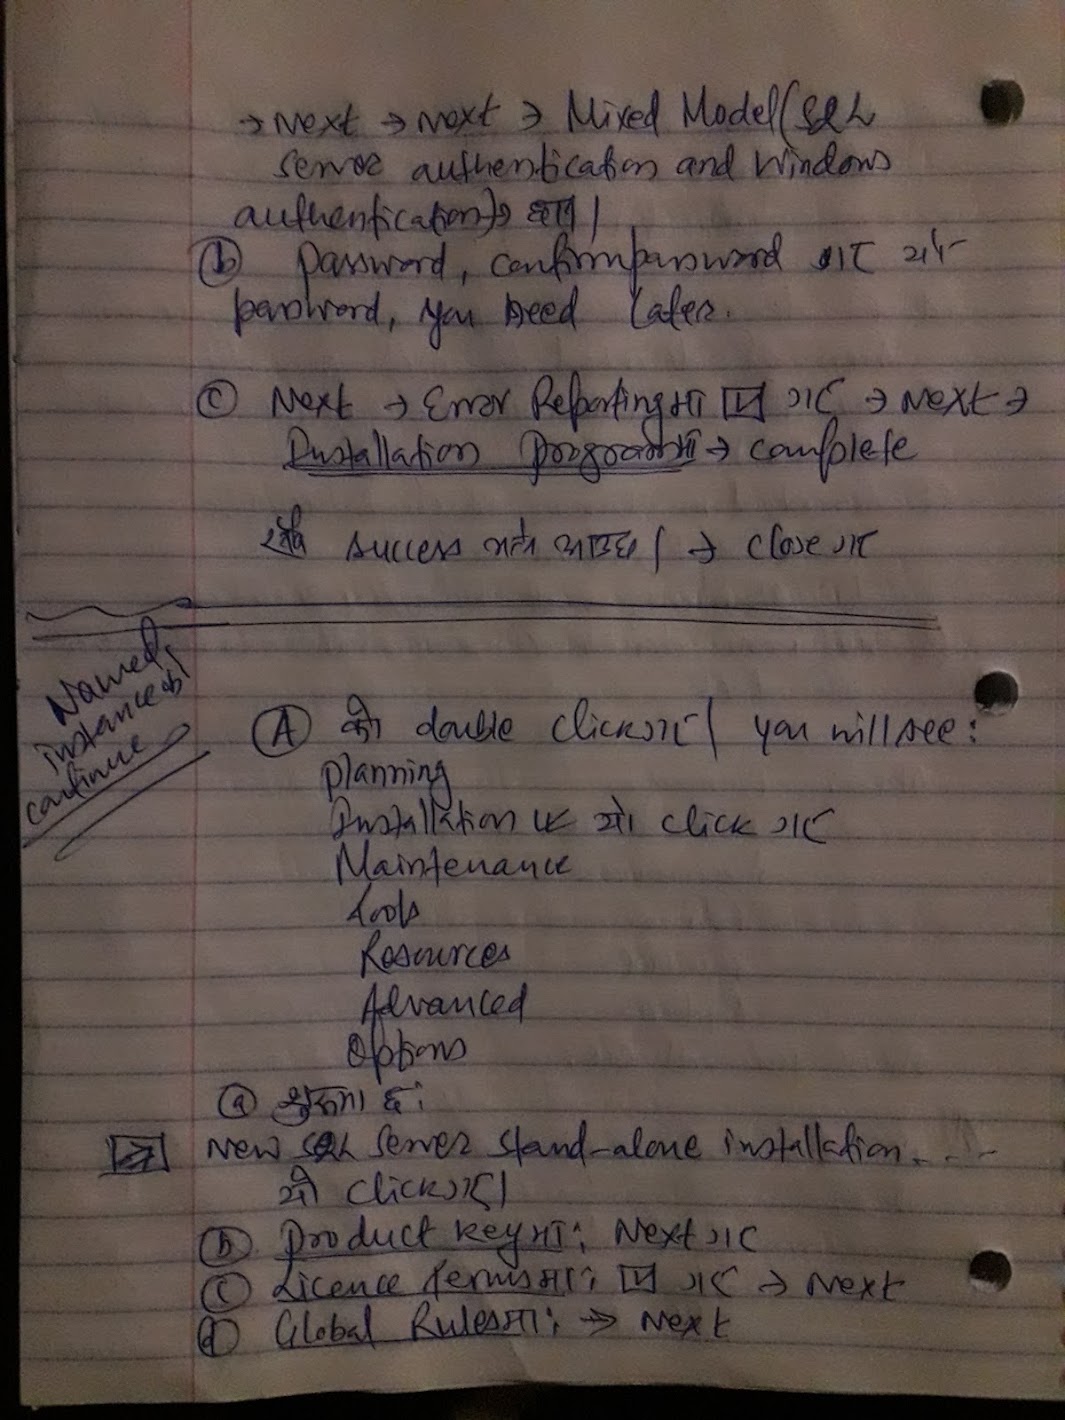 → Next → Next → Mixed Model (SQL
Server authentication and Windows
authentication) →
(b) Password, confirm password गर
password, you need later.
(c) Next → Error Reporting मा ☑ गर → Next →
Installation Program मा → complete
success भने आउछ। → close गर
Named
instance को
continue
(A) को double click गर। you will see:
Planning
Installation ← यो click गर
Maintenance
Tools
Resources
Advanced
Options
(a) छ:
→ New SQL Server stand-alone installation . . . .
यो click गर।
(b) Product key मा: Next गर
(c) Licence terms मा: ☑ गर → Next
(d) Global Rules मा: → Next